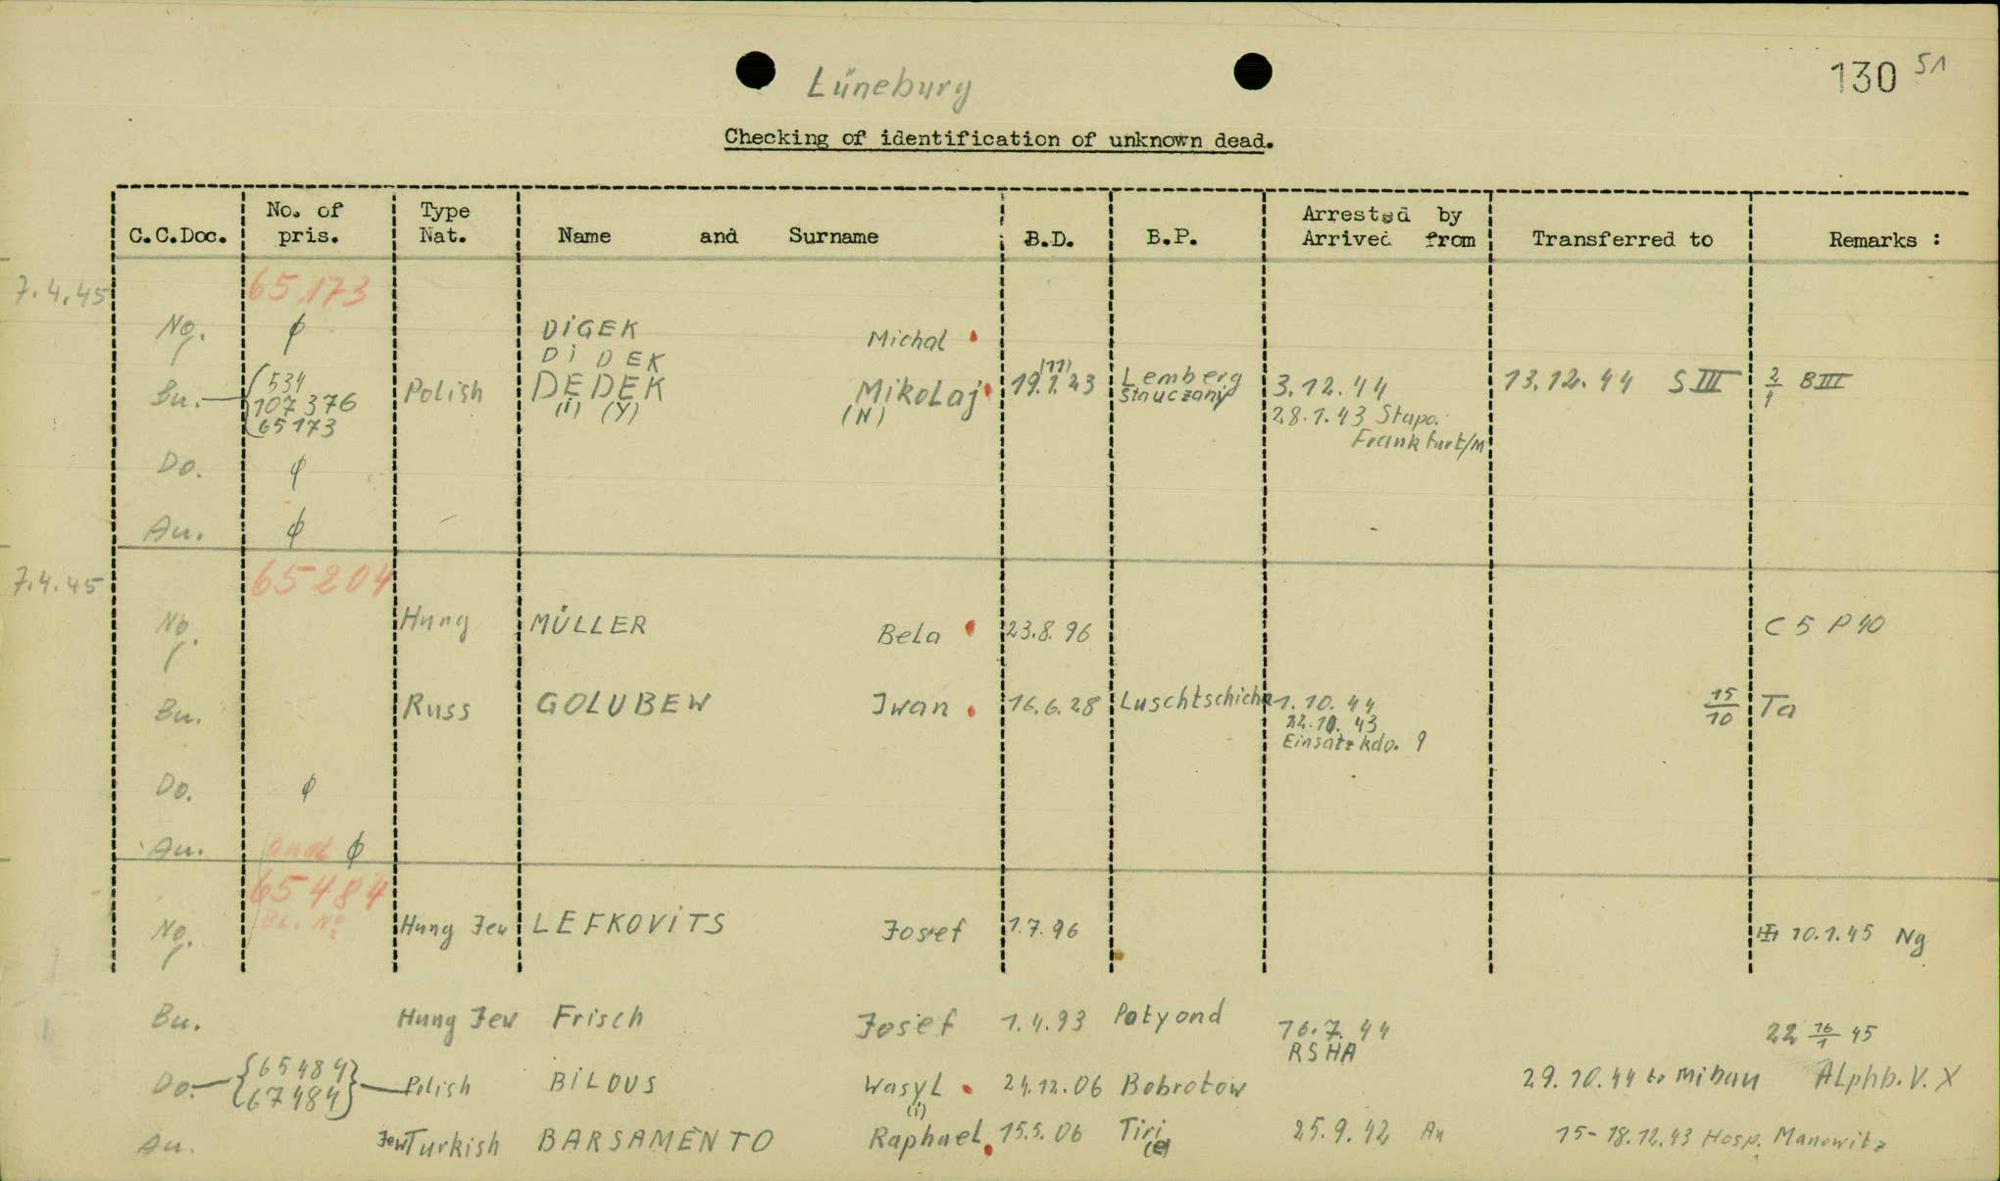 Lüneburg
130 51
Checking of identification of unknown dead.
C.C.Doc. No. of pris. Type Nat. Name and Surname B.D. B.P. Arrested by Arrived from Transferred to Remarks :
7.4.45 65173
Ng. ϕ DiGEK Michal
Di DEK
Bu. 534 107376 65173 Polish DEDEK Mikolaj 19.1.23 (11) Lemberg 3.12.44 13.12.44 S III 2/1 B III
(i) (Y) (N) 28.1.43 Stapo.
Frankfurt/M
Do. ϕ
Au. ϕ
7.4.45 65204
Ng. Hung MÜLLER Bela 23.8.96 C 5 P 40
Bu. Russ GOLUBEW Iwan 16.6.28 Luschtschicha 1.10.44 15/10 Ta
22.10.43
Einsatzkdo. 9
Do. ϕ
Au. ϕ
65484
Ng. Hung Jew LEFKOViTS Josef 1.7.96 10.1.45 Ng
Bu. Hung Jew Frisch Josef 1.4.93 Potyond 16.7.44 22 16/1 45
RSHA
Do. 65484 67484 Polish BiLOUS Wasyl 24.12.06 Bobrotow 29.10.44 to Mibau Alphb. V. X
(i)
Au. Jew Turkish BARSAMENTO Raphael 15.5.06 Tiri (e) 25.9.42 Au 15-18.12.43 Hosp. Manowitz